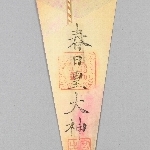 春日皇大神